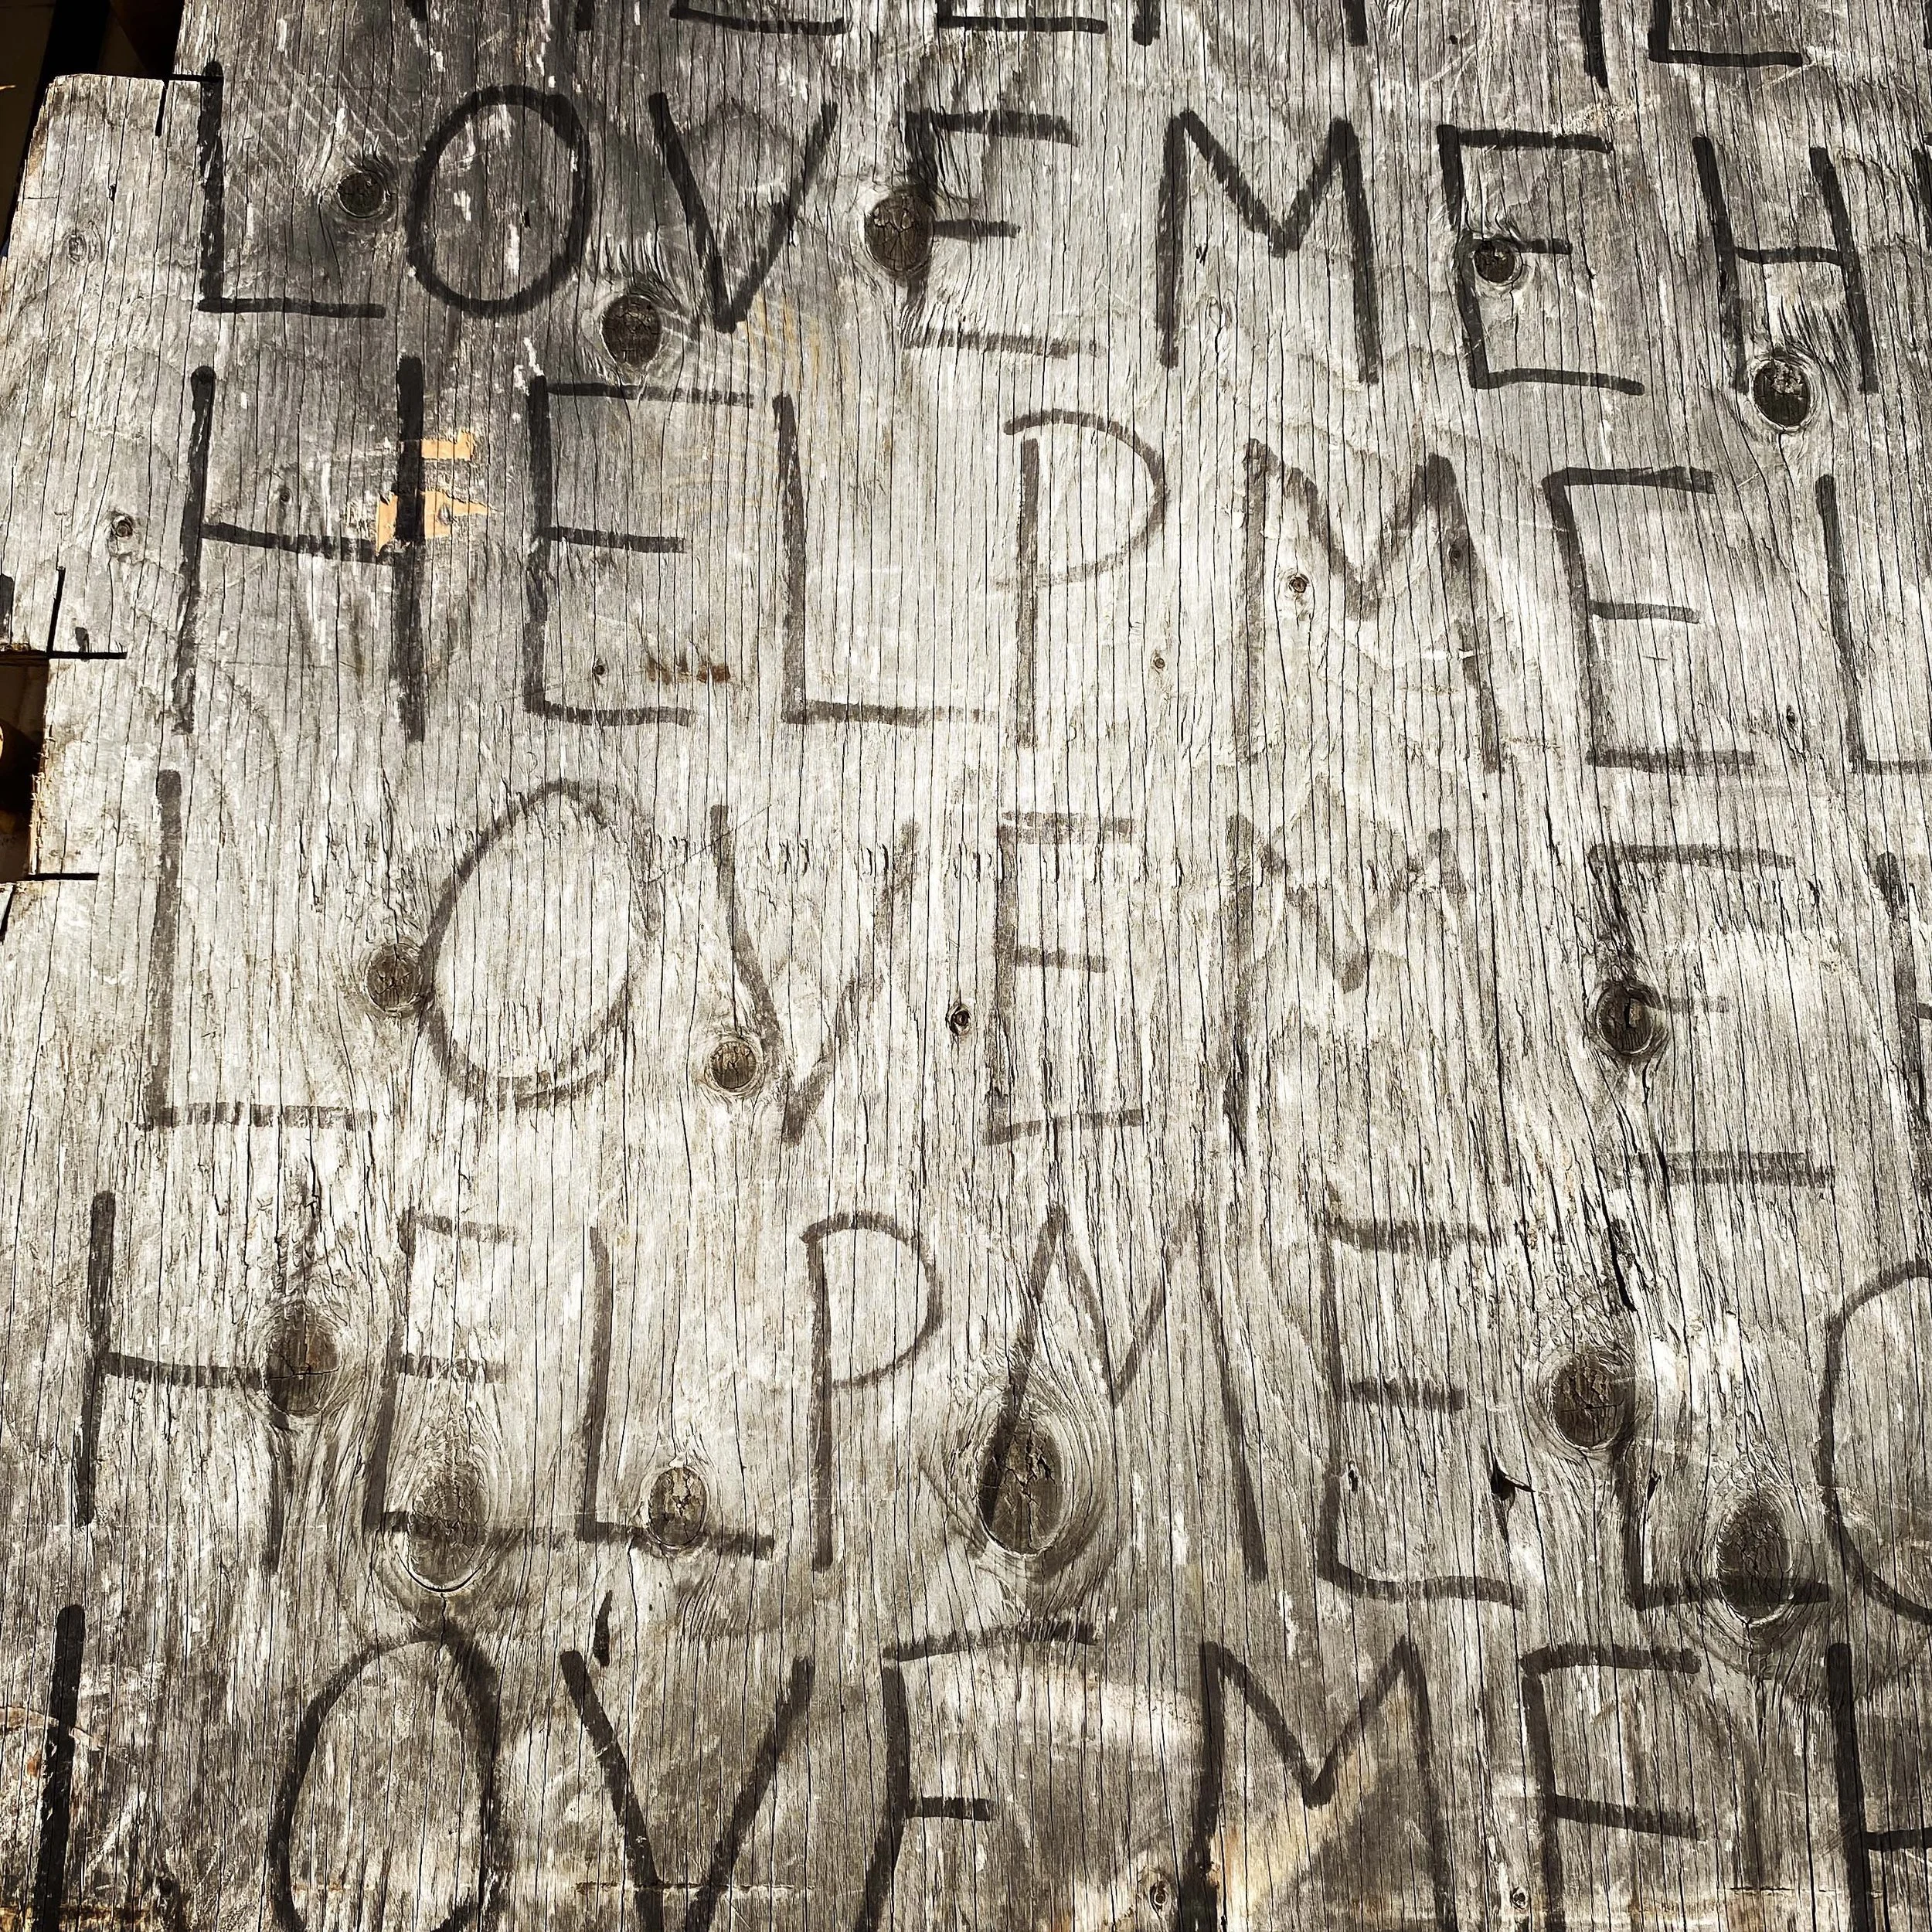 LOVE ME H
HELP ME L
LOVE ME
HELP ME LO
LOVE ME H